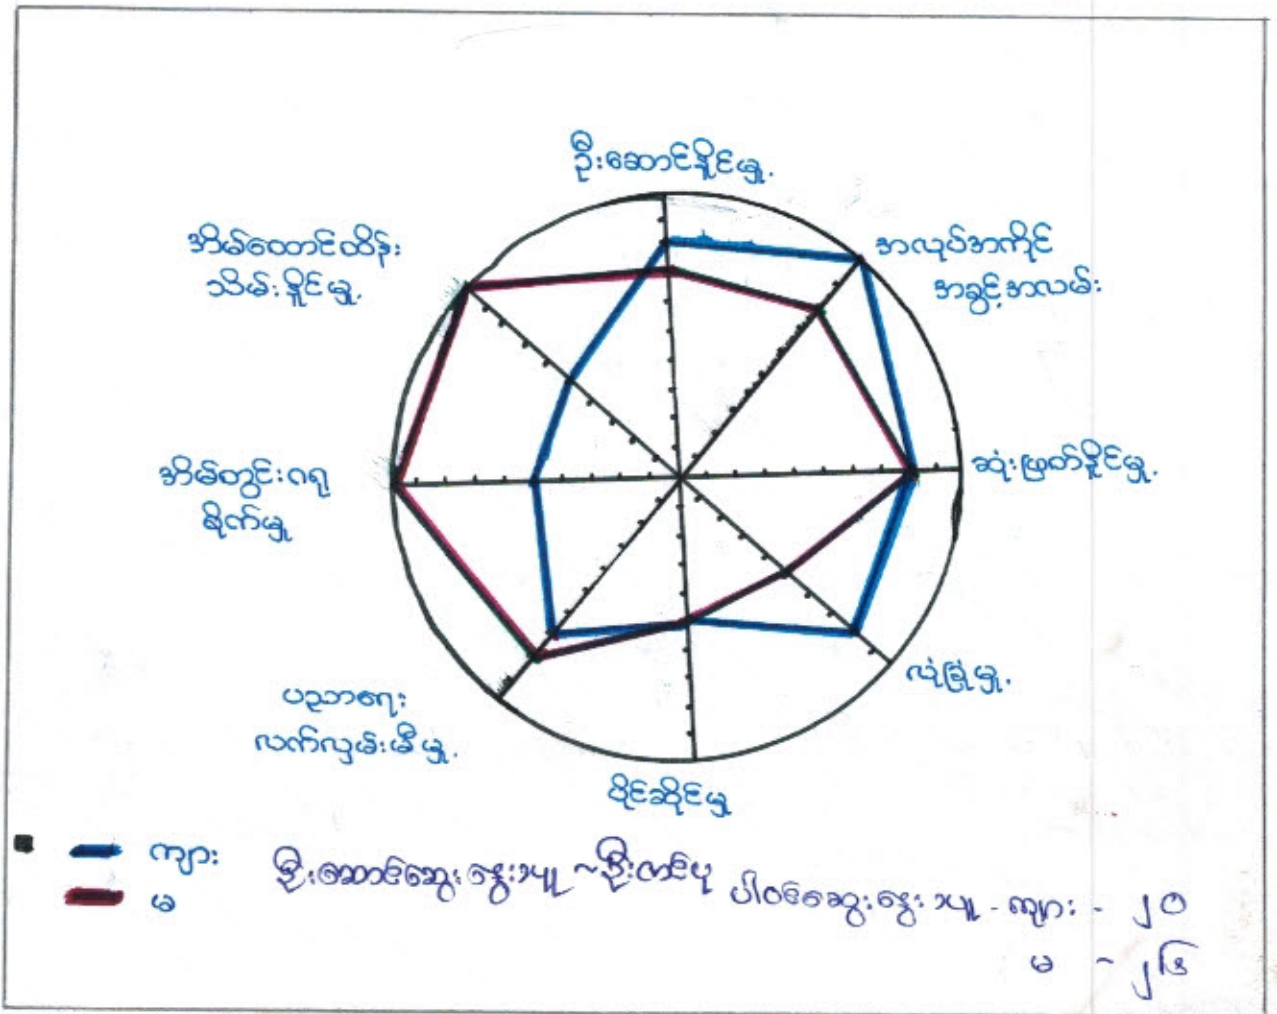 ဦးဆောင်နိုင်မှု.
အလုပ်အကိုင်
အခွင့်အလမ်း
ဆုံးဖြတ်နိုင်မှု.
လုံခြုံမှု.
ပိုင်ဆိုင်မှု
ပညာရေး
လက်လှမ်းမီမှု.
အိမ်တွင်းဂရု
စိုက်မှု
အိမ်ထောင်ထိန်း
သိမ်းနိုင်မှု.
ကျား
မ
ဦးဆောင်ဆွေးနွေးသူ ~ ဦးတင်ပု
ပါဝင်ဆွေးနွေးသူ - ကျား - ၂၀
မ ~ ၂၆